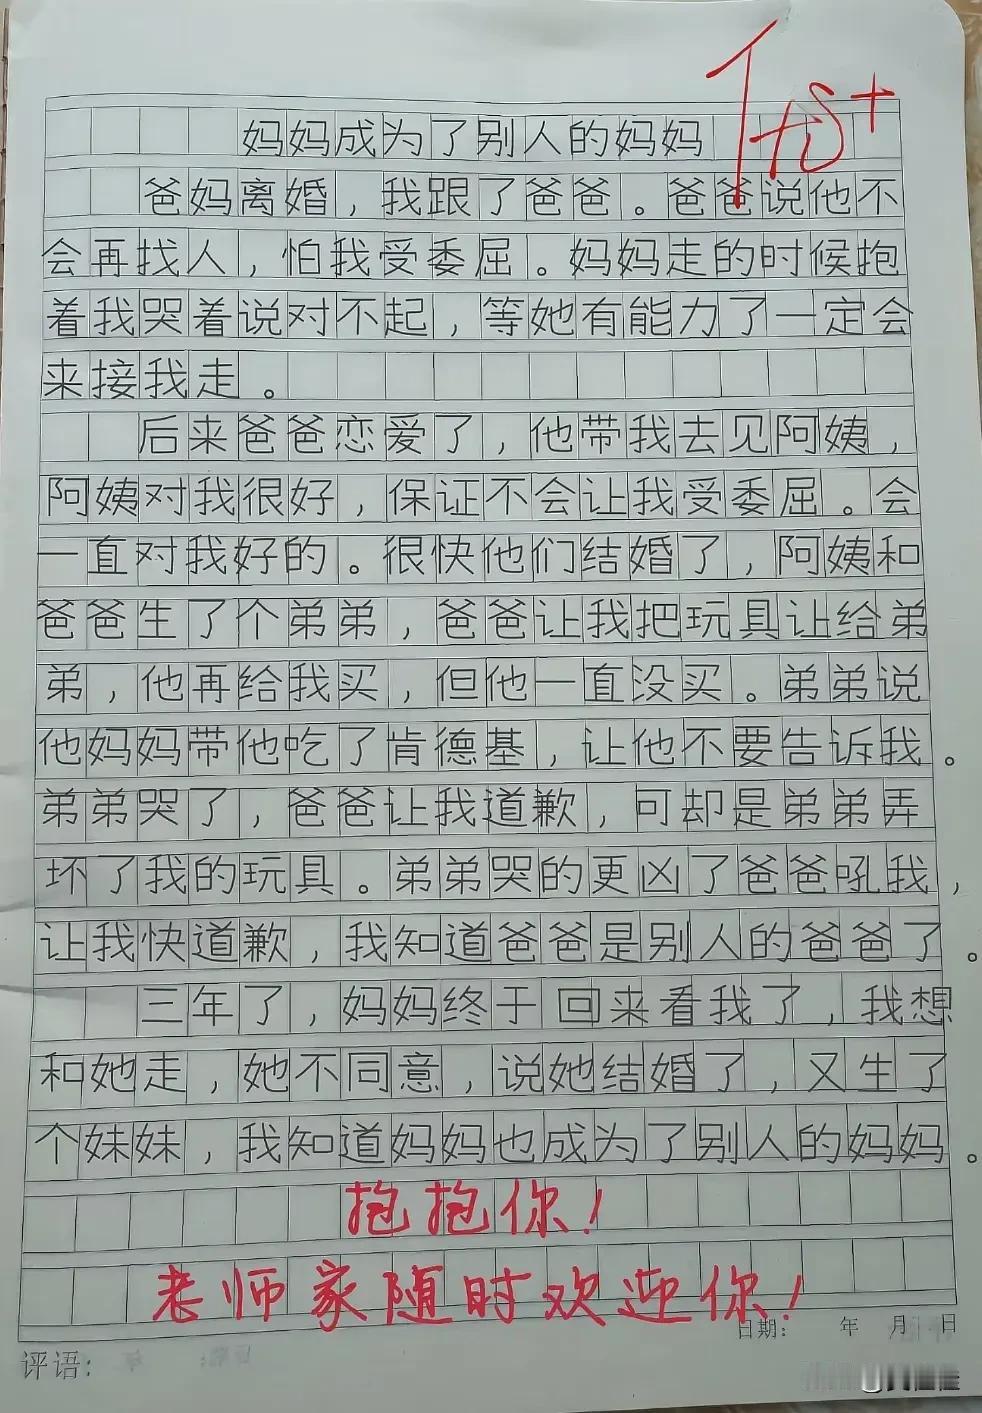 妈妈成为了别人的妈妈
爸妈离婚，我跟了爸爸。爸爸说他不
会再找人，怕我受委屈。妈妈走的时候抱
着我哭着说对不起，等她有能力了一定会
来接我走。
后来爸爸恋爱了，他带我去见阿姨，
阿姨对我很好，保证不会让我受委屈。会
一直对我好的。很快他们结婚了，阿姨和
爸爸生了个弟弟，爸爸让我把玩具让给弟
弟，他再给我买，但他一直没买。弟弟说
他妈妈带他吃了肯德基，让他不要告诉我。
弟弟哭了，爸爸让我道歉，可却是弟弟弄
坏了我的玩具。弟弟哭的更凶了爸爸吼我，
让我快道歉，我知道爸爸是别人的爸爸了。
三年了，妈妈终于回来看我了，我想
和她走，她不同意，说她结婚了，又生了
个妹妹，我知道妈妈也成为了别人的妈妈。
抱抱你！
老师家随时欢迎你！
日期： 年 月 日
评语：